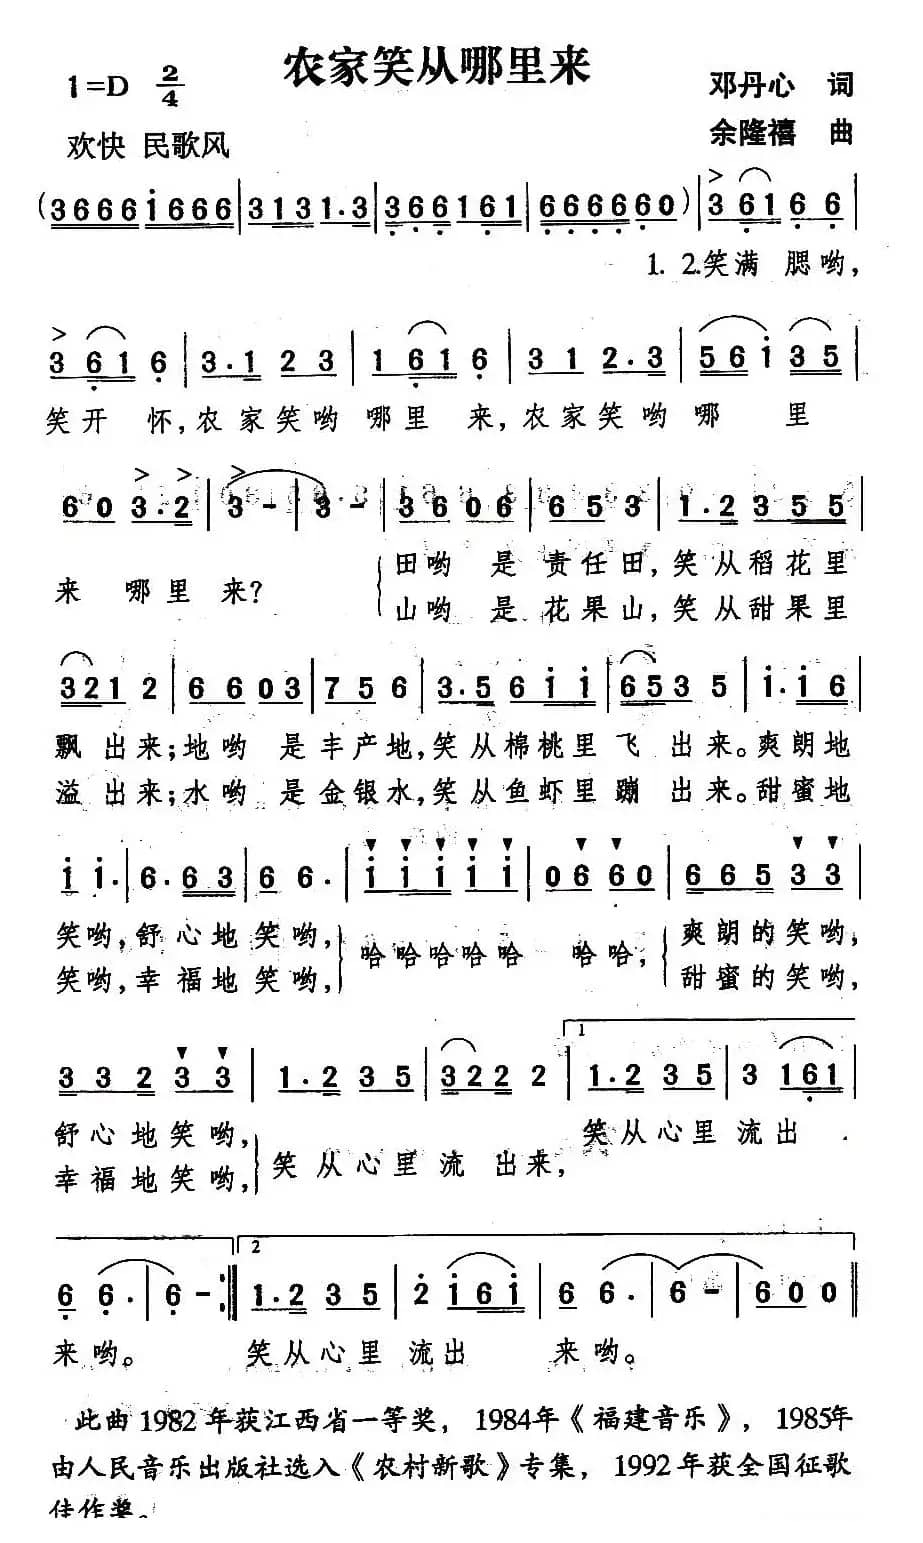 农家笑从哪里来
1=D 2/4
邓丹心 词
欢快 民歌风
余隆禧 曲
(3666i666 | 3131 1.3 | 366161 | 6666660) | 3 616 6 |
1. 2.笑满 腮哟,
3 616 | 3.1 2 3 | 1 616 | 3 1 2.3 | 56i 35 |
笑开 怀,农家笑哟 哪里 来,农家笑哟哪 里
60 3.2 | 3 - | 3 - | 3606 | 653 | 1.2 355 |
田哟 是 责任田,笑从稻花里
来 哪里来?
山哟 是 花果山,笑从甜果里
321 2 | 6 603 | 756 | 3.5 6 i i | 6535 5 | i.i i6
飘 出来;地哟 是丰产地,笑从棉桃里飞 出来。爽朗地
溢 出来;水哟 是金银水,笑从鱼虾里蹦 出来。甜蜜地
i i. | 6.663 | 66. | i i i i i | 0660 | 66533 |
笑哟,舒心地笑哟, 哈哈哈哈哈 哈哈, 爽朗的笑哟,
笑哟,幸福地笑哟, 甜蜜的笑哟,
33233 | 1.2 35 | 3222 2 | 1 1.2 35 | 3 161 |
舒心地笑哟, 笑从心里流出
笑从心里流 出来,
幸福地笑哟,
6 6. | 6 - :‖ 2 1.2 35 | 2 i6i | 6 6. | 6 - | 600 ‖
来哟。 笑从心里 流出 来哟。
此曲1982年获江西省一等奖，1984年《福建音乐》，1985年
由人民音乐出版社选入《农村新歌》专集，1992年获全国征歌
佳作奖。